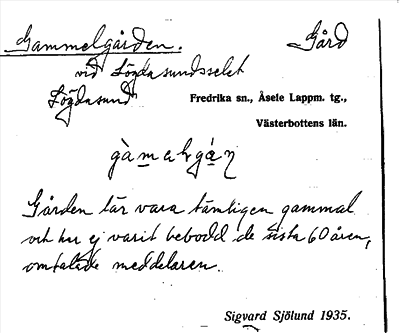 Gammelgården. Gård
vid Lögdasundsselet
Lögdasund
Fredrika sn., Åsele Lappm. tg.,
Västerbottens län.
Gården lär vara tämligen gammal
och har ej varit bebodd de sista 60 åren,
omtalade meddelaren.
Sigvard Sjölund 1935.